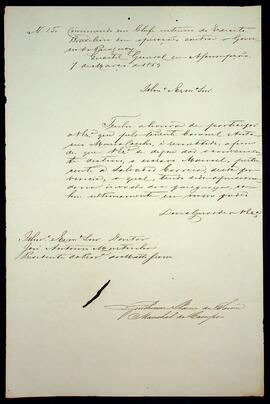 Nº 15. Commando em Chefe interino do Exercito
Brasileiro em operações contra o Gover
no do Paraguay.
Quartel General em Assumpção
7 de Março de 1869
Illmo. Exmo. Snr.
Tenho a honra de participar
a V. Exª que pelo Tenente Coronel Anto
nio Maria Coelho, é remettido, afim
de que V. Exª. se digne dar-lhe conveniente
destino, o escravo Manoel, perten
cente a Salvador Correia, desta pro
vincia, o qual, tendo sido aprisiona
do na invasão dos paraguayos, ca
hio ultimamente em nosso poder.
Deus Guarde a V. Exª
Illmo. Exmo. Snr. Doutor
José Antonio Murtinho
Presidente da Prov. de Matto Grosso
Guilherme Xavier de Souza
Marechal de Campo